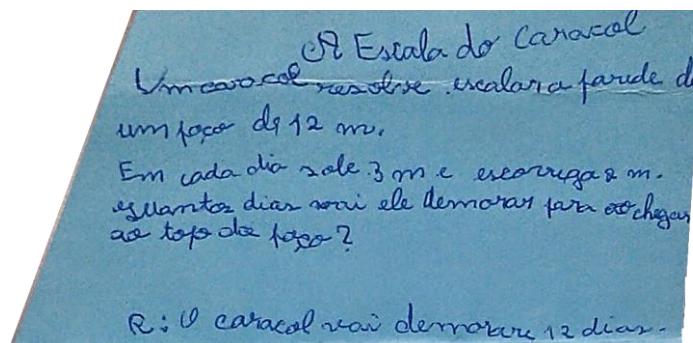 A Escala do Caracol
Um caracol resolve escalar a parede d
um poço de 12 m.
Em cada dia sobe 3 m e escorrega 2 m.
quantos dias vai ele demorar para chegar
ao topo do poço?
R: O caracol vai demorar 12 dias.